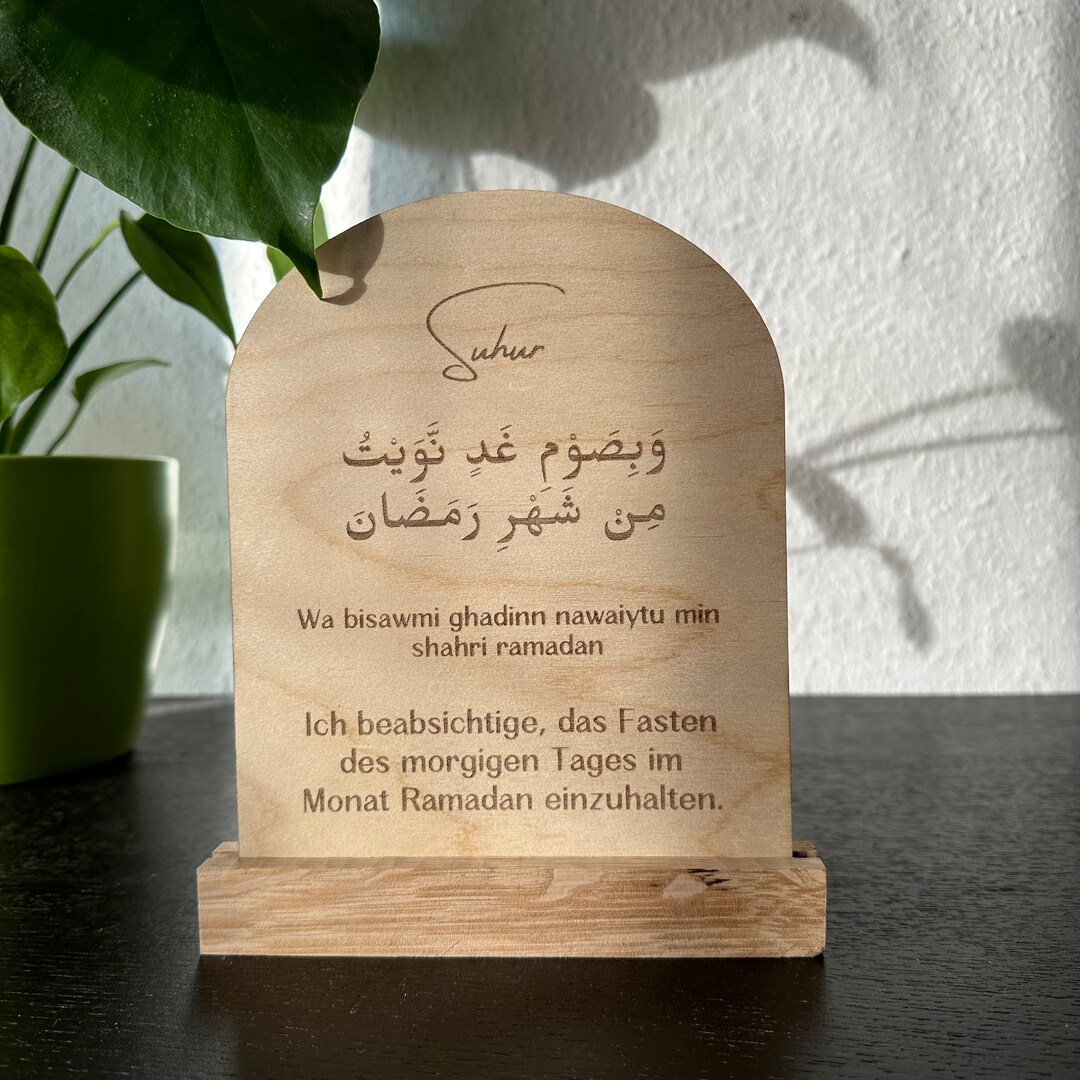 Suhur
وَبِصَوْمِ غَدٍ نَّوَيْتُ
مِنْ شَهْرِ رَمَضَانَ
Wa bisawmi ghadinn nawaiytu min
shahri ramadan
Ich beabsichtige, das Fasten
des morgigen Tages im
Monat Ramadan einzuhalten.